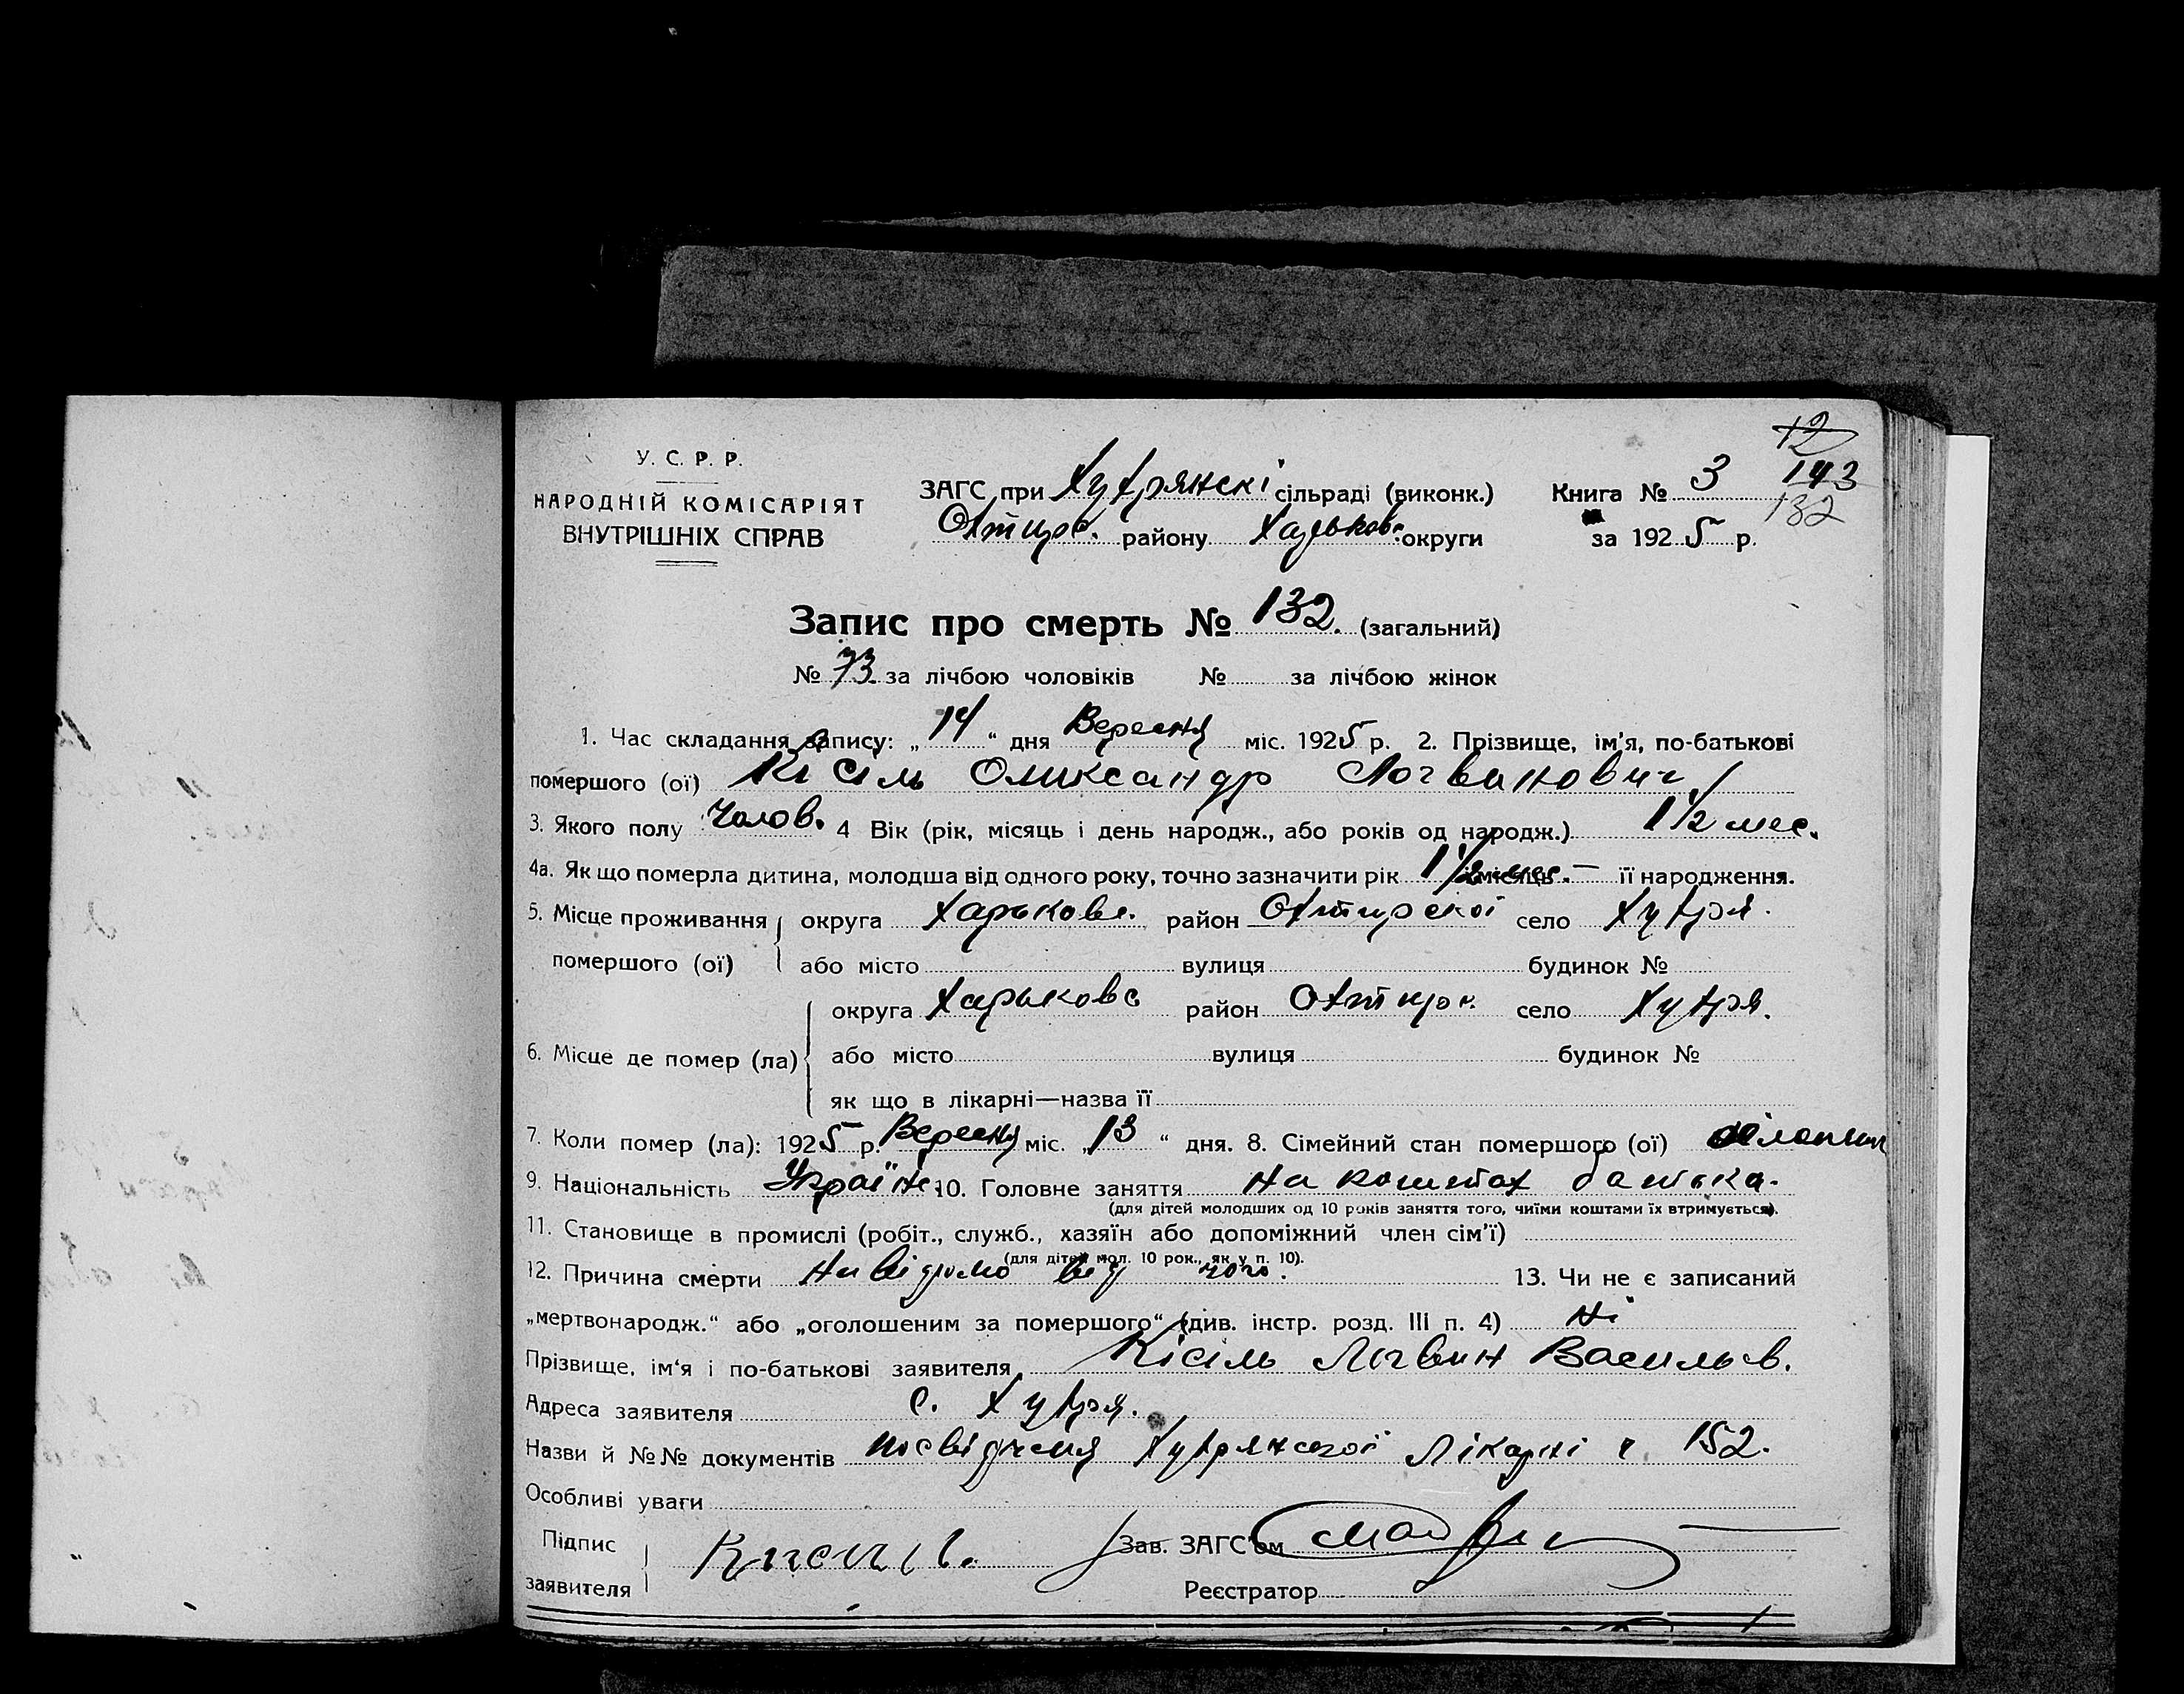 12
У. С. Р. Р.
НАРОДНІЙ КОМІСАРІЯТ
ВНУТРІШНІХ СПРАВ
ЗАГС при Хухрянскі сільраді (виконк.)
Охтирс. району Харьков. округи
Книга № 3 143
132
за 1925 р.
Запис про смерть № 132. (загальний)
№ 73. за лічбою чоловіків № за лічбою жінок
1. Час складання запису: „14“ дня Вересня міс. 1925 р. 2. Прізвище, ім'я, по-батькові
помершого (ої) Кісіль Олександр Логвинович
3. Якого полу Чолов. 4 Вік (рік, місяць і день народж., або років од народж.) 1 1/2 мес.
4а. Як що померла дитина, молодша від одного року, точно зазначити рік 1 1/2 місяць мес. — її народження.
5. Місце проживання округа Харькове. район Охтирскої село Хухря.
помершого (ої) або місто вулиця будинок №
округа Харьковс район Охтирс. село Хухря.
6. Місце де помер (ла) або місто вулиця будинок №
як що в лікарні—назва її
7. Коли помер (ла): 1925 р. Вересня міс. „13“ дня. 8. Сімейний стан помершого (ої)
9. Національність Україн. 10. Головне заняття на коштах батька.
(для дітей молодших од 10 років заняття того, чиїми коштами їх втримується).
11. Становище в промислі (робіт., служб., хазяїн або допоміжний член сім'ї)
(для дітей мол. 10 рок., як у п. 10).
12. Причина смерти Невідомо від чого. 13. Чи не є записаний
„мертвонародж.“ або „оголошеним за помершого“ (див. інстр. розд. III п. 4) ні
Прізвище, ім'я і по-батькові заявителя Кісіль Логвин Васильв.
Адреса заявителя с. Хухря.
Назви й №№ документів посвідченя Хухрянської лікарні ч. 152.
Особливі уваги
Підпис
заявителя
Зав. ЗАГС'ом
Реєстратор